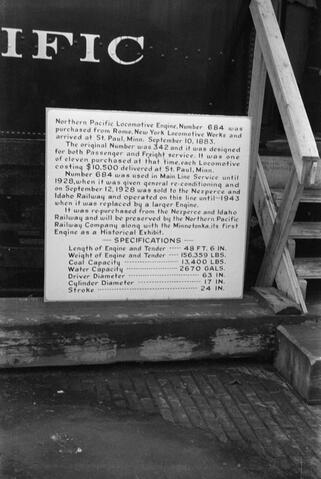 IFIC
Northern Pacific Locomotive Engine, Number 684 was
purchased from Rome, New York Locomotive Works and
arrived at St. Paul, Minn. September 10, 1883.
The original Number was 342 and it was designed
for both Passenger and Freight service. It was one
of eleven purchased at that time, each Locomotive
costing $10,500 delivered at St. Paul, Minn.
Number 684 was used in Main Line Service until
1928, when it was given general re-conditioning and
on September 12, 1928 was sold to the Nezperce and
Idaho Railway and operated on this line until-1943
when it was replaced by a larger Engine.
It was repurchased from the Nezperce and Idaho
Railway and will be preserved by the Northern Pacific
Railway Company along with the Minnetonka, its first
Engine as a Historical Exhibit.
— SPECIFICATIONS —
Length of Engine and Tender ---- 48 FT. 6 IN.
Weight of Engine and Tender ---- 156,359 LBS.
Coal Capacity ---- 13,400 LBS.
Water Capacity ---- 2670 GALS.
Driver Diameter ---- 63 IN.
Cylinder Diameter ---- 17 IN.
Stroke ---- 24 IN.